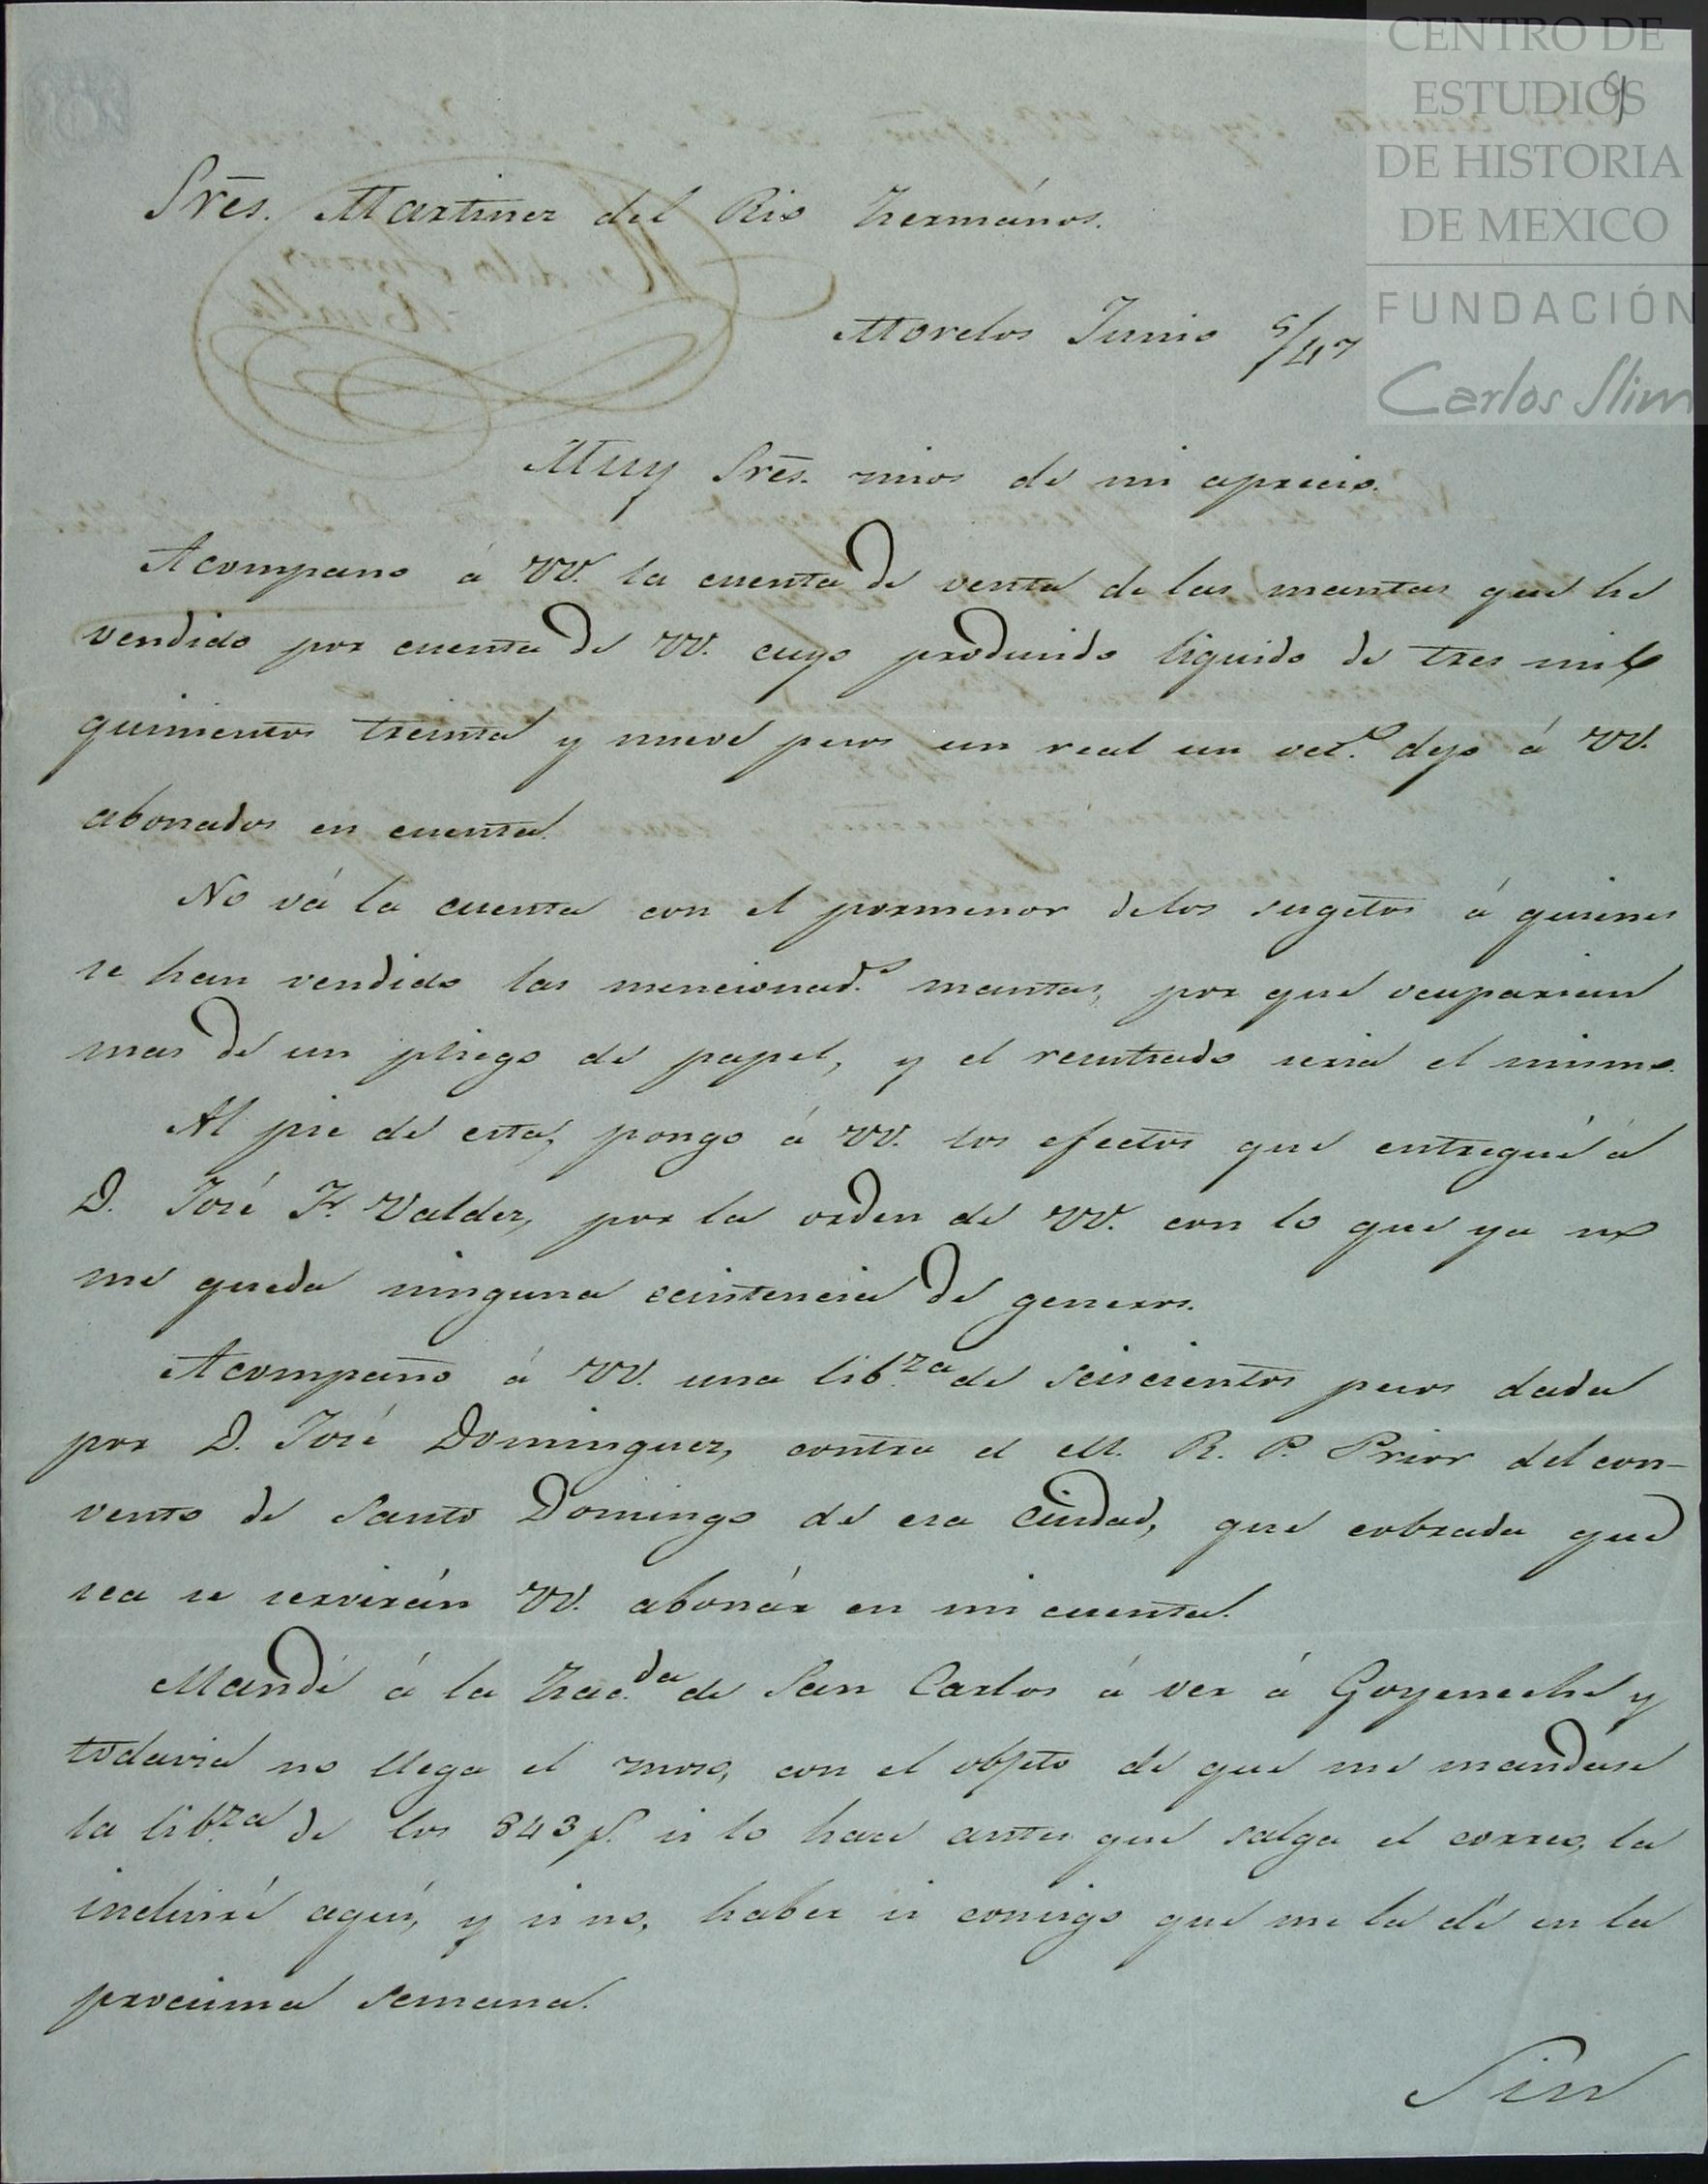 CENTRO DE
ESTUDIOS
DE HISTORIA
DE MEXICO
FUNDACIÓN
Carlos Slim
9
Sres. Martinez del Rio Hermános.
Morelos Junio 5/47
Muy Sres. mios de mi aprecio.
Acompaño á VV. la cuenta de venta de las mantas que he
vendido por cuenta de VV. cuyo producido liquido de tres mil
quinientos treinta y nueve pesos un real un oct.o dejo á VV.
abonados en cuenta.
No vá la cuenta con el pormenor delos sugetos á quienes
se han vendido las mencionad.s mantas, por que ocuparian
mas de un pliego de papel, y el resultado seria el mismo.
Al pie de esta, pongo á VV. los efectos que entregué á
D. José F. Valdez, por la orden de VV. con lo que ya no
me queda ninguna ecsistencia de generos.
Acompaño á VV. una lib.za de seiscientos pesos dada
por D. José Dominguez, contra el M. R. P. Prior del con-
vento de Santo Domingo de esa Ciudad, que cobrada que
sea se servirán VV. abonár en mi cuenta.
Mandé á la Hac.da de San Carlos á ver á Goyeneche y
todavia no llega el moso, con el objeto de que me mandase
la lib.za de los 843 p.s si lo hace antes que salga el correo, la
incluiré aquí, y si no, haber si consigo que me la dé en la
procsima semana.
Sin